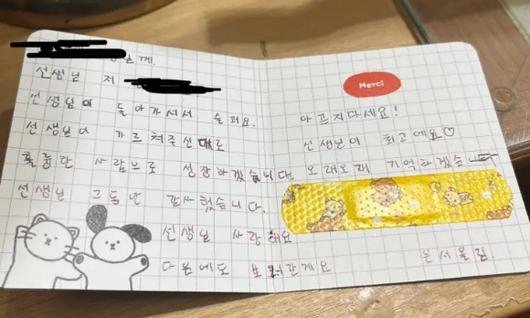 께.
선생님 저
선생님이 돌아가셔서 슬퍼요.
선생님이 가르쳐주신대로
훌륭한 사람으로 성장하겠습니다.
선생님 그동안 감사했습니다.
선생님 사랑해요
다음에도 보러갈게요
Merci
아프지마세요!
선생님이 최고예요♡
오래오래 기억하겠습
은서올림.